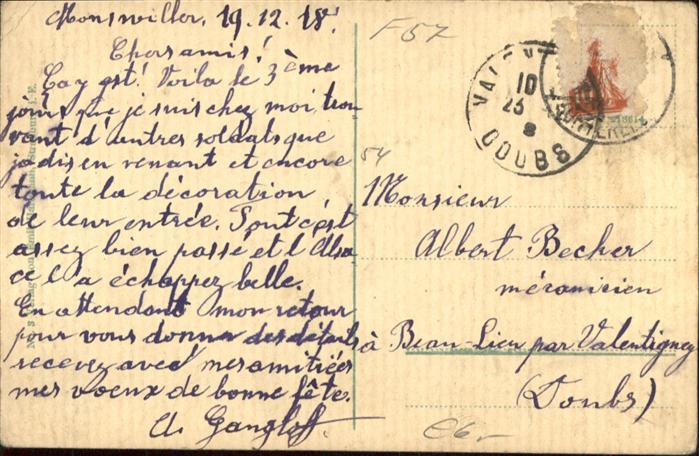 Monswiller, 19.12.18.
Chers amis!
Ça y est! Voila le 3ème
jours que je suis chez moi, trou
vant d'autres soldats que
jadis en venant et encore
toute la décoration
de leur entrée. Tout c'est
assez bien passé et l'Alsa
ce l'a échappez belle.
En attendant mon retour
pour vous donner des détails
recevez avec mes amitiées
mes voeux de bonne fête.
A. Gangloff.
F 57
VALEN
10
23
8
DOUBS
54
Monsieur
Albert Becher
mécanicien
à Beau-Lieu par Valentigney
(Doubs)
C6-